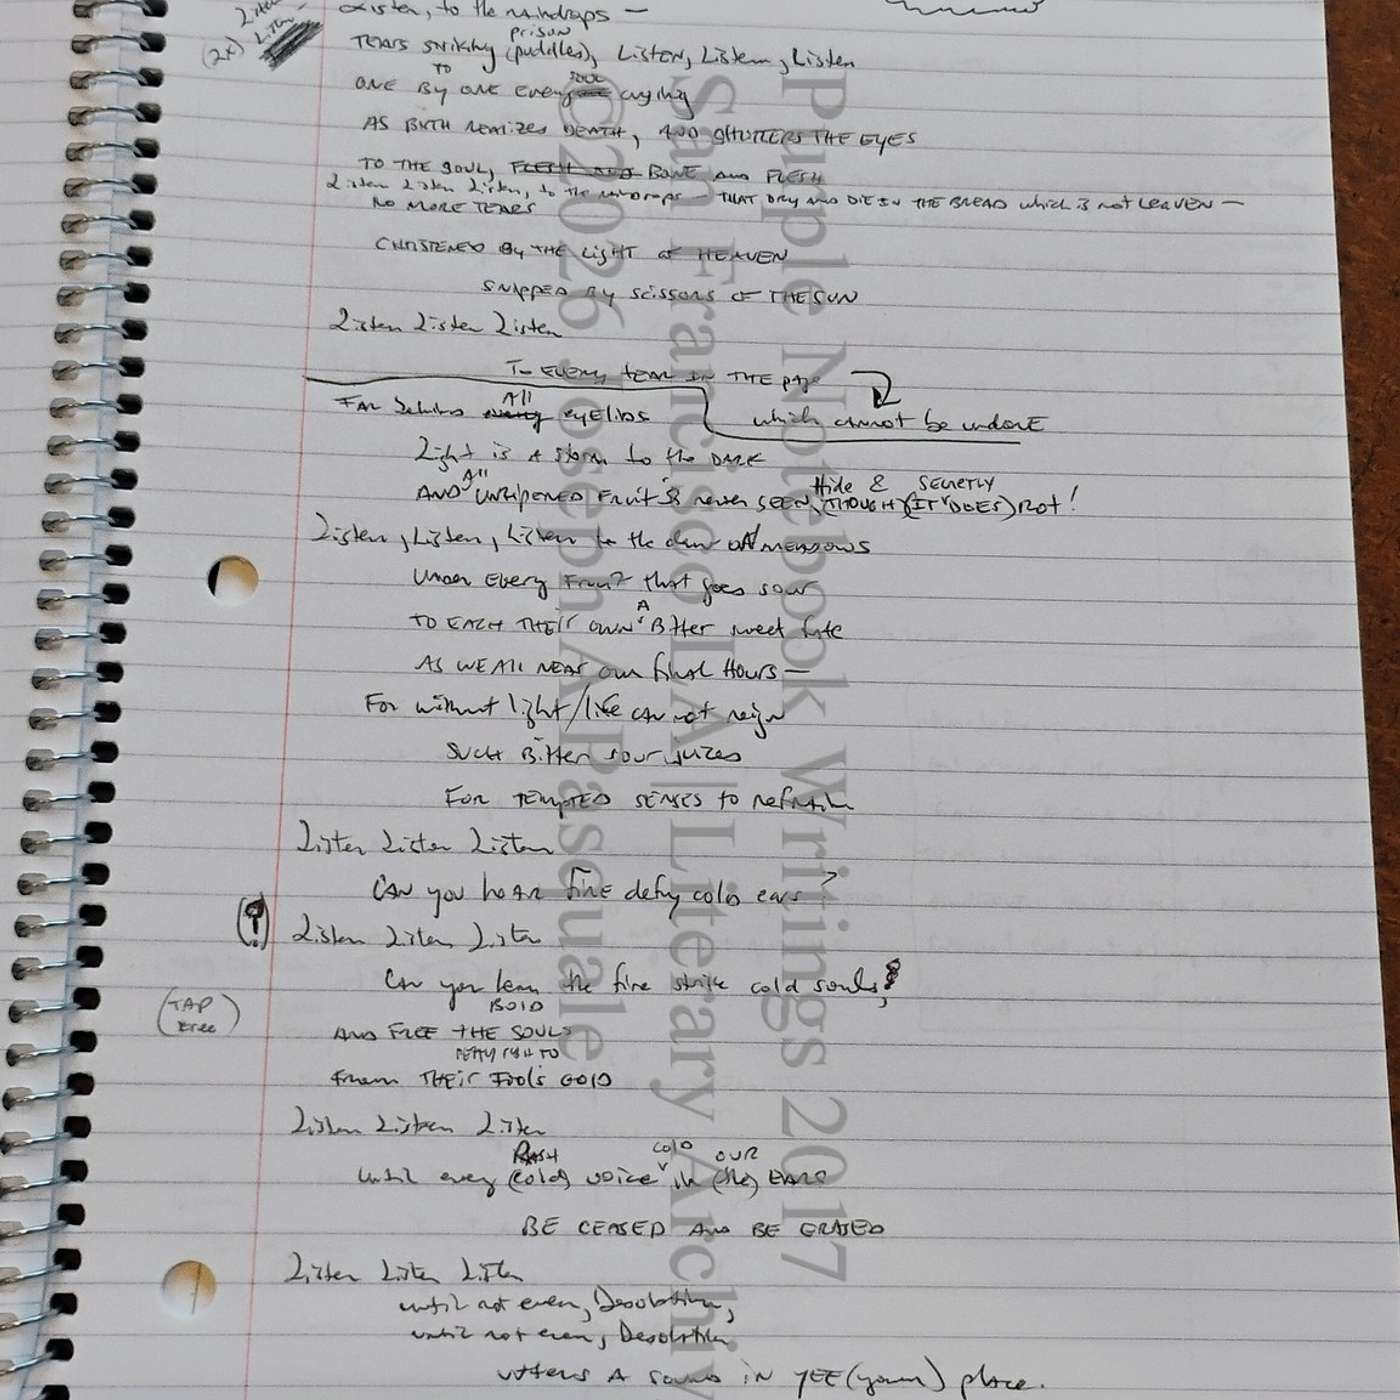 Listen
(2x) Listen
Listen, to the raindrops —
prison
TEARS striking (puddles), LISTEN, Listen, Listen
TO SOUL
ONE BY ONE every crying
AS BIRTH REALIZES DEATH, AND SHUTTERS THE EYES
TO THE SOUL, FLESH AND BONE AND FLESH
Listen Listen Listen, to the raindrops — THAT DRY AND DIE IN THE BREAD which is not LEAVEN —
NO MORE TEARS
CHRISTENED By THE LigHT OF HEAVEN
SNAPPED BY SCISSORS OF THE SUN
Listen Listen Listen
To EVERY tear IN THE page
which cannot be undonE
All
FAR behind every eyELIDS
Light is A storm to the DARK
All Hide & SECRETLY
AND UNRIPENED Fruit is never SEEN, (THOUGH) (IT DOES) Rot!
Listen, Listen, Listen to the dew ON MEADOWS
Under Every Fruit that goes sour
A
TO EACH THEIR OWN BitteR sweet fate
AS WE All NEAR our final HOURS —
For without light/life CAN not reign
SUCH Bitter sour juices
FOR TEMPTED SENSES to refrain
Listen Listen Listen
CAN you hEAR fire defy cold ears?
(?) Listen Listen Listen
Can you hear the fire strike cold souls,
BOLD
(TAP tree) AND FREE THE SOULS
From THEIR Fool's GOLD
Listen Listen Listen
RASH COLD OUR
until every (cold) voice in (the) EARS
BE CEASED AND BE ERASED
Listen Listen Listen
until not even, Desolation,
until not even, Desolation
utters A sound IN YEE (your) place.
Purple Notebook Writings 2017
San Francisco LAI Literary Archiv
©2026 Joseph A Pasquale